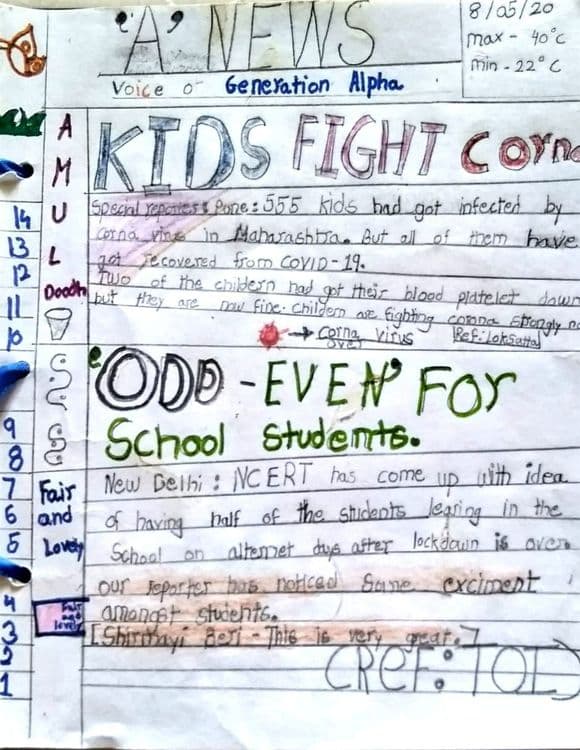 'A' NEWS
Voice o Generation Alpha
8/05/20
max - 40°C
min - 22°C
A
M
U
L
Doodh
KIDS FIGHT Corna
Special reporter: Pune: 555 kids had got infected by
corna virus in Maharashtra. But all of them have
got recovered from COVID-19.
Two of the childern had got their blood platelet down
but they are now fine. childern are fighting corona strongly
→ corna virus
over
Ref: Loksatta
'ODD - EVEN' FOR
School Students.
New Delhi: NCERT has come up with idea
of having half of the students learing in the
School on alternet days after lockdown is over.
our reporter has noticed Same exciment
amongst students.
[Shirmayi Beri - This is very great.]
(Ref: TOI)
Fair
and
Lovely
Fair
and
lovely
14
13
12
11
10
9
8
7
6
5
4
3
2
1